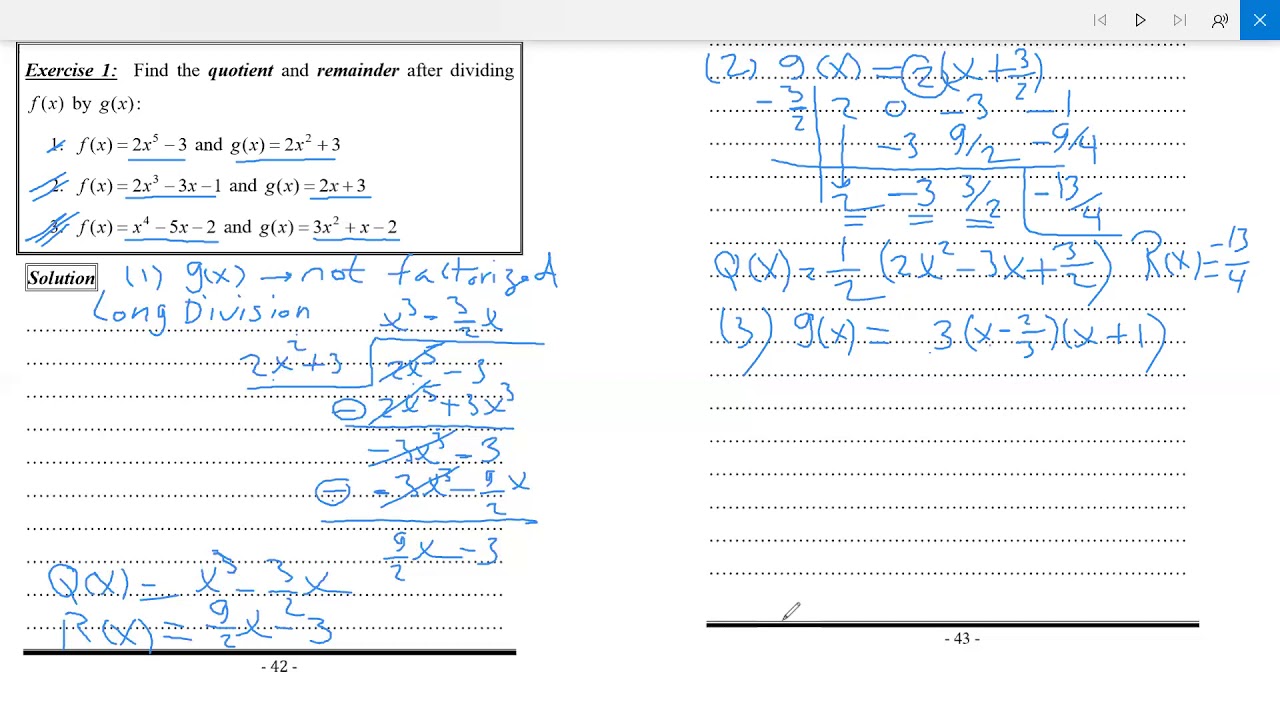 Exercise 1: Find the quotient and remainder after dividing
f(x) by g(x):
1. f(x) = 2x⁵ − 3 and g(x) = 2x² + 3
2. f(x) = 2x³ − 3x − 1 and g(x) = 2x + 3
3. f(x) = x⁴ − 5x − 2 and g(x) = 3x² + x − 2
Solution (1) g(x) → not factorized
Long Division
x³ − 3/2 x
2x² + 3 2x⁵ − 3
⊖ 2x⁵ + 3x³
−3x³ − 3
⊖ −3x³ − 9/2 x
9/2 x − 3
Q(x) = x³ − 3/2 x
R(x) = 9/2 x − 3
- 42 -
(2) g(x) = 2(x + 3/2)
−3/2 2 0 −3 −1
−3 9/2 −9/4
2 −3 3/2 −13/4
Q(x) = 1/2 (2x² − 3x + 3/2) R(x) = −13/4
(3) g(x) = 3(x − 2/3)(x + 1)
- 43 -